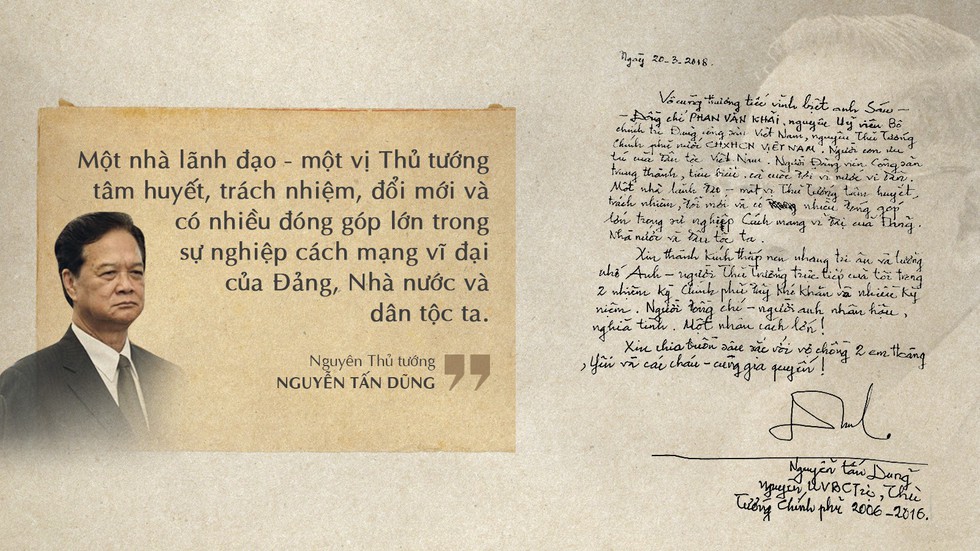 Một nhà lãnh đạo - một vị Thủ tướng
tâm huyết, trách nhiệm, đổi mới và
có nhiều đóng góp lớn trong
sự nghiệp cách mạng vĩ đại
của Đảng, Nhà nước và
dân tộc ta.
Nguyên Thủ tướng
NGUYỄN TẤN DŨNG
Ngày 20-3-2018.
Vô cùng thương tiếc vĩnh biệt anh Sáu -
- Đồng chí PHAN VĂN KHẢI, nguyên Uỷ viên Bộ
chính trị Đảng cộng sản Việt Nam, nguyên Thủ Tướng
Chính phủ nước CHXHCN VIỆT NAM. Người con ưu
tú của dân tộc Việt Nam. Người Đảng viên Cộng sản
trung thành, tiêu biểu, cả cuộc đời vì nước vì dân.
Một nhà lãnh đạo - một vị Thủ Tướng tâm huyết,
trách nhiệm, đổi mới và có nhiều đóng góp
lớn trong sự nghiệp Cách mạng vĩ đại của Đảng,
Nhà nước và dân tộc ta.
Xin thành kính thắp nén nhang tri ân và tưởng
nhớ Anh - người Thủ Trưởng trực tiếp của tôi trong
2 nhiệm kỳ Chính phủ đầy khó khăn và nhiều kỷ
niệm. Người đồng chí - người anh nhân hậu,
nghĩa tình. Một nhân cách lớn!
Xin chia buồn sâu sắc với vợ chồng 2 em Hoàng
, Yến và các cháu - cùng gia quyến!
Nguyễn Tấn Dũng
nguyên UVBCTrị, Thủ
Tướng Chính phủ 2006-2016.